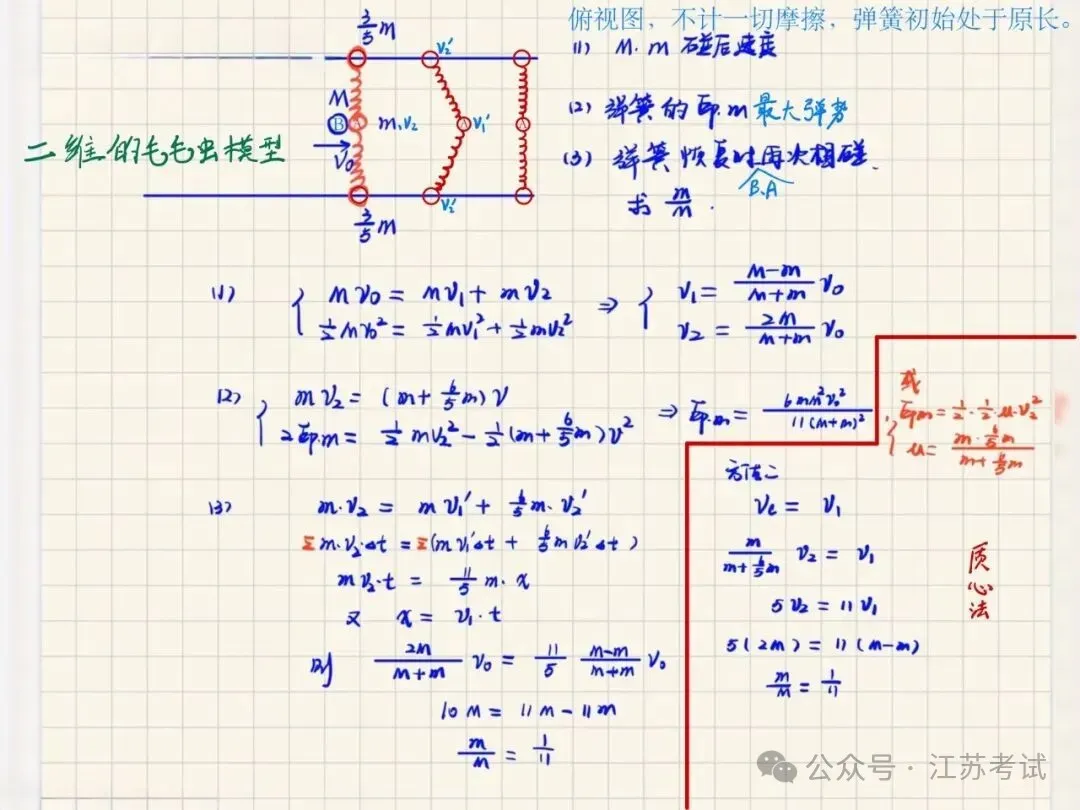 俯视图，不计一切摩擦，弹簧初始处于原长。
二维的毛毛虫模型
3/5 m
M
B
A
m.v₂
v₀
3/5 m
v₂'
v₁'
v₂'
A
(1) M.m 碰后速度
(2) 弹簧的Ep.m 最大弹势
(3) 弹簧恢复时再次相碰.
B.A
求 m/M.
(1) { Mv₀ = Mv₁ + mv₂
½Mv₀² = ½Mv₁² + ½mv₂²
⇒ { v₁ = (M-m)/(M+m) v₀
v₂ = 2M/(M+m) v₀
(2) { mv₂ = (m + 6/5 m)v
2Ep.m = ½mv₂² - ½(m + 6/5 m)v²
⇒ Ep.m = 6mM²v₀²/11(M+m)²
或
{ Epm = ½·½·μ·v₂²
μ = (m·6/5 m)/(m + 6/5 m)
(3) m.v₂ = mv₁' + 6/5 m.v₂'
Σm.v₂.Δt = Σ(mv₁'Δt + 6/5 mv₂'Δt)
mv₂.t = 11/5 m.x
又 x = v₁.t
则 2M/(M+m) v₀ = 11/5 (M-m)/(M+m) v₀
10M = 11M - 11m
m/M = 1/11
方法二
Vc = V₁
m/(m + 6/5 m) v₂ = v₁
5v₂ = 11v₁
5(2M) = 11(M-m)
m/M = 1/11
质心法
公众号·江苏考试